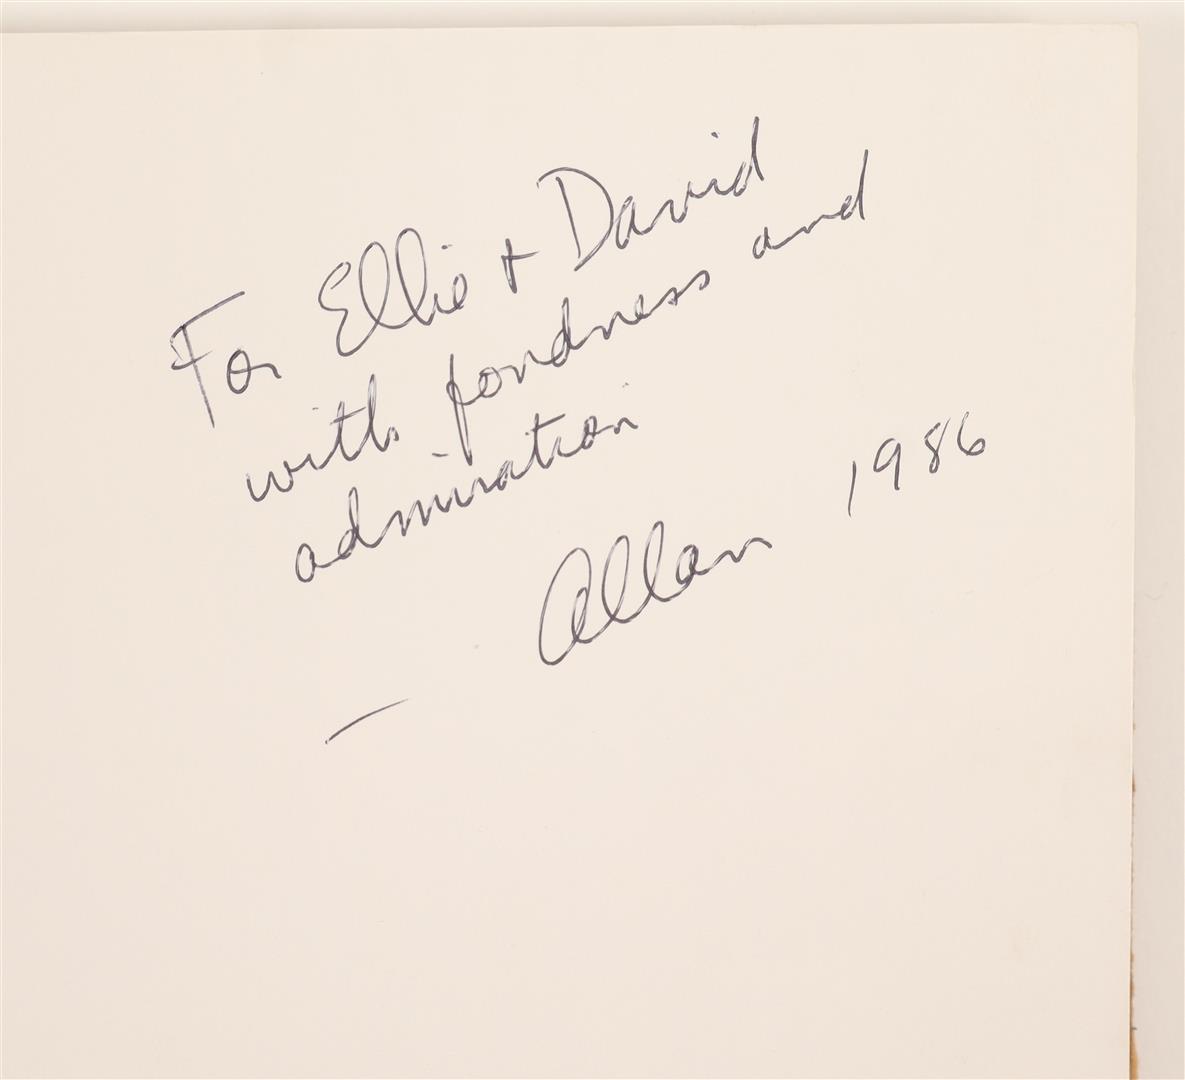 For Ellie + David
with fondness and
admiration
— Allan 1986